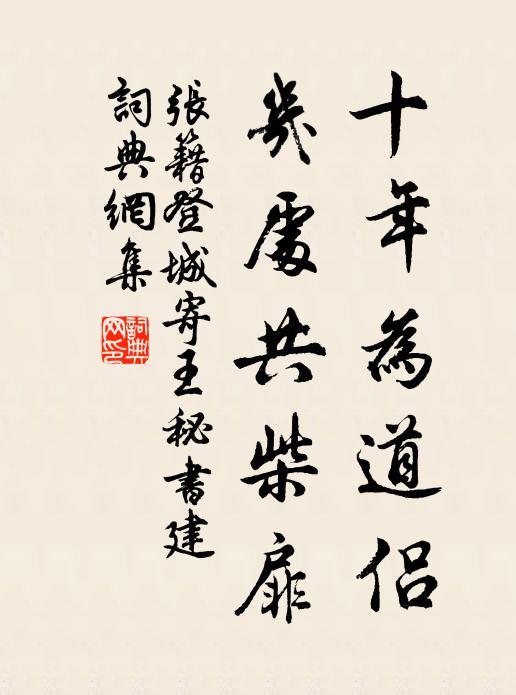 十年為道侶
幾處共柴扉
張籍登城寄王秘書建
詞典網集
詞典網印